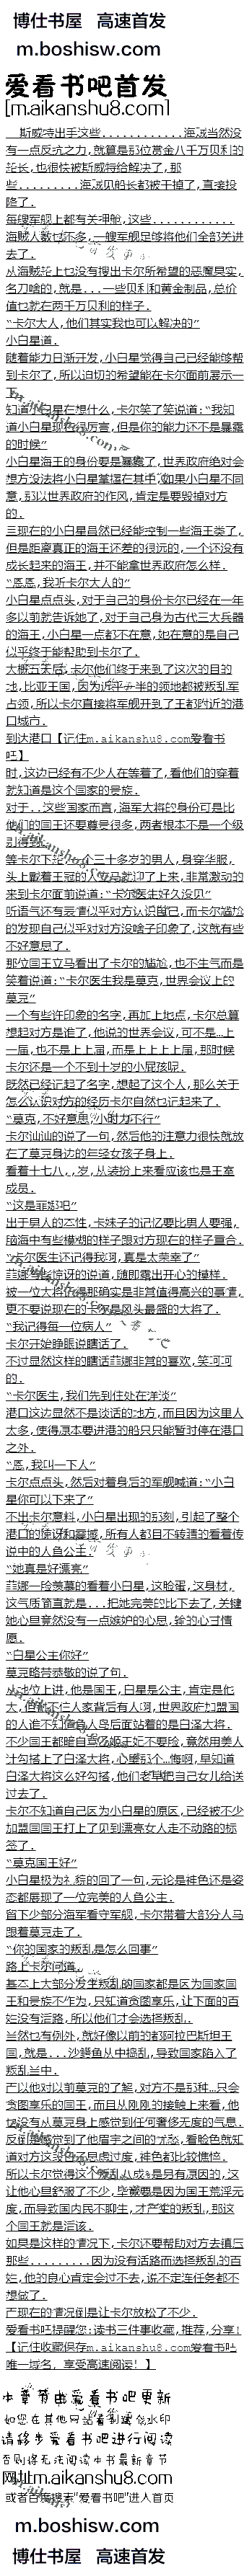 博仕书屋 高速首发
m.boshisw.com
爱看书吧首发
[m.aikanshu8.com]
斯威特出手这些............海贼当然没
有一点反抗之力,就算是那位赏金八千万贝利的
船长,也很快被斯威特给解决了,那
些.........海贼见船长都被干掉了,直接投
降了.
每艘军舰上都有关押舱,这些............
海贼人数也不多,一艘军舰足够将他们全部关进
去了.
从海贼船上也没有搜出卡尔所希望的恶魔果实,
名刀啥的,就是...一些贝利和黄金制品,总价
值也就在两千万贝利的样子.
“卡尔大人,他们其实我也可以解决的”
小白星道.
随着能力日渐开发,小白星觉得自己已经能够帮
到卡尔了,所以迫切的希望能在卡尔面前展示一
下.
知道小白星在想什么,卡尔笑了笑说道:“我知
道小白星现在很厉害,但是你的能力还不是暴露
的时候”
小白星海王的身份要是暴露了,世界政府绝对会
想方设法将小白星掌握在其中,如果小白星不同
意,那以世界政府的作风,肯定是要毁掉对方
的.
且现在的小白星虽然已经能控制一些海王类了,
但是距离真正的海王还差的很远的,一个还没有
成长起来的海王,并不能拿世界政府怎么样.
“恩恩,我听卡尔大人的”
小白星点点头,对于自己的身份卡尔已经在一年
多以前就告诉她了,对于自己身为古代三大兵器
的海王,小白星一点都不在意,她在意的是自己
似乎终于能帮助到卡尔了.
大概五天后,卡尔他们终于来到了这次的目的
地,比亚王国,因为近乎一半的领地都被叛乱军
占领,所以卡尔直接将军舰开到了王都附近的港
口城市.
到达港口【记住m.aikanshu8.com爱看书
吧】
时,这边已经有不少人在等着了,看他们的穿着
就知道是这个国家的贵族.
对于..这些国家而言,海军大将的身份可是比
他们的国王还要尊贵很多,两者根本不是一个级
别得到.
等卡尔下船,一个三十多岁的男人,身穿华服,
头上戴着王冠的人马上就迎了上来,非常激动的
来到卡尔面前说道:“卡尔医生好久没见”
听语气还有表情似乎对方认识自己,而卡尔尴尬
的发现自己似乎对对方没啥子印象了,这就有些
不好意思了.
那位国王立马看出了卡尔的尴尬,也不生气而是
笑着说道:“卡尔医生我是莫克,世界会议上的
莫克”
一个有些许印象的名字,再加上地点,卡尔总算
想起对方是谁了,他说的世界会议,可不是…上
一届,也不是上上届,而是上上上上届,那时候
卡尔还是一个不到十岁的小屁孩呢.
既然已经记起了名字,想起了这个人,那么关于
怎么认识对方的经历卡尔自然也记起来了.
“莫克,不好意思,小时力不行”
卡尔讪讪的说了一句,然后他的注意力很快就放
在了莫克身边的年轻女孩子身上.
看着十七八,岁,从装扮上来看应该也是王室
成员.
“这是菲娜吧”
出于男人的本性,卡妹子的记忆要比男人要强,
脑海中有些模糊的样子跟对方现在的样子重合.
“卡尔医生还记得我啊,真是太荣幸了”
菲娜有些惊讶的说道,随即露出开心的模样.
被一位大将记得那确实是非常值得高兴的事情,
更不要说现在的卡尔是风头最盛的大将了.
“我记得每一位病人”
卡尔开始睁眼说瞎话了.
不过显然这样的瞎话菲娜非常的喜欢,笑呵呵
的.
“卡尔医生,我们先到住处在详谈”
港口这边显然不是谈话的地方,而且因为这里人
太多,使得原本要进港的船只只能暂时停在港口
之外.
“恩,我叫一下人”
卡尔点点头,然后对着身后的军舰喊道:“小白
星你可以下来了”
不出卡尔意料,小白星出现的那刻,引起了整个
港口的骚动和震撼,所有人都目不转睛的看着传
说中的人鱼公主.
“她真是好漂亮”
菲娜一脸羡慕的看着小白星,这脸蛋,这身材,
这气质简直就是...把她完美的比下去了,关键
她心里竟然没有一点嫉妒的心思,输的心甘情
愿.
“白星公主你好”
莫克略带恭敬的说了句.
从地位上讲,他是国王,白星是公主,肯定是他
大,但架不住人家背后有人啊,世界政府加盟国
的人谁不知道鱼人岛后面站着的是白泽大将.
不少国王都暗自骂尼普顿王妃不要脸,竟然用美人
计勾搭上了白泽大将,心里那个…悔啊,早知道
白泽大将这么好勾搭,他们老早把自己女儿给送
过去了.
卡尔不知道自己因为小白星的原因,已经被不少
加盟国国王打上了见到漂亮女人走不动路的标
签了.
“莫克国王好”
小白星极为礼貌的回了一句,无论是神色还是姿
态都展现了一位完美的人鱼公主.
留下少部分海军看守军舰,卡尔带着大部分人马
跟着莫克走了.
“你的国家的叛乱是怎么回事”
路上卡尔问道.
基本上大部分发生叛乱的国家都是因为国家国
王和贵族不作为,只知道贪图享乐,让下面的百
姓没有活路,所以他们才会选择叛乱.
当然也有例外,就好像以前的都阿拉巴斯坦王
国,就是...沙鳄鱼从中捣乱,导致国家陷入了
叛乱当中.
而以他对以前莫克的了解,对方不是那种…只会
贪图享乐的国王,而且从刚刚的接触上来看,他
也没有从莫克身上感觉到任何奢侈无度的气息.
反倒是感觉到了他眉宇之间的忧愁,看脸色就知
道对方这段日子思虑过度,神色都比较憔悴.
所以卡尔觉得这次叛乱八成%是另有原因的,这
让他心里舒服了不少,毕竟要是因为国王荒淫无
度,而导致国内民不聊生,才产生的叛乱,那这
个国王就是活该.
如果是这样的情况下,卡尔还要帮助对方去镇压
那些.........因为没有活路而选择叛乱的百
姓,他的良心肯定会过不去,说不定连任务都不
想做了.
而现在的情况倒是让卡尔放松了不少.
爱看书吧提醒您:读书三件事收藏,推荐,分享!
【记住收藏保存m.aikanshu8.com爱看书吧
唯一域名，享受高速阅读！】
本章节由爱看书吧更新
如您在其他网站看到这张水印
请移步爱看书吧进行阅读
否则将无法阅读本书最新章节
网址m.aikanshu8.com
或者百度搜索“爱看书吧”进入首页
m.boshisw.com
博仕书屋 高速首发